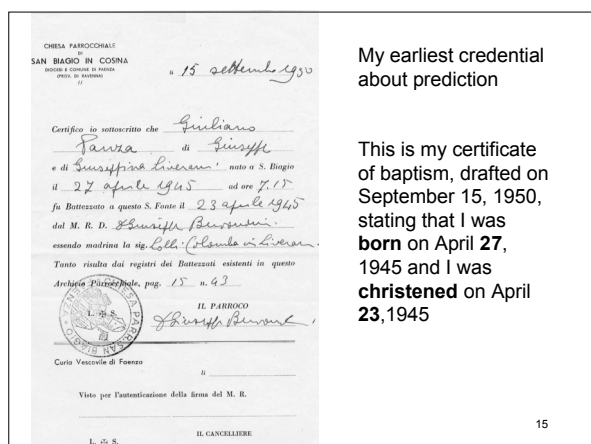 CHIESA PARROCCHIALE
DI
SAN BIAGIO IN COSINA
DIOCESI E COMUNE DI FAENZA
(PROV. DI RAVENNA)
li 15 settembre 1950
Certifico io sottoscritto che Giuliano
Panza di Giuseppe
e di Giuseppina Liverani nato a S. Biagio
il 27 aprile 1945 ad ore 7.15
fu Battezzato a questo S. Fonte il 23 aprile 1945
dal M. R. D. Giuseppe
essendo madrina la sig. Lolli Colomba in Liverani
Tanto risulta dai registri dei Battezzati esistenti in questo
Archivio Parrocchiale, pag. 15 n. 43
IL PARROCO
L. S.
D Giuseppe
CHIESA PARR. SAN BIAGIO
Curia Vescovile di Faenza
li
Visto per l'autenticazione della firma del M. R.
IL CANCELLIERE
L. S.
My earliest credential
about prediction
This is my certificate
of baptism, drafted on
September 15, 1950,
stating that I was
born on April 27,
1945 and I was
christened on April
23,1945
15